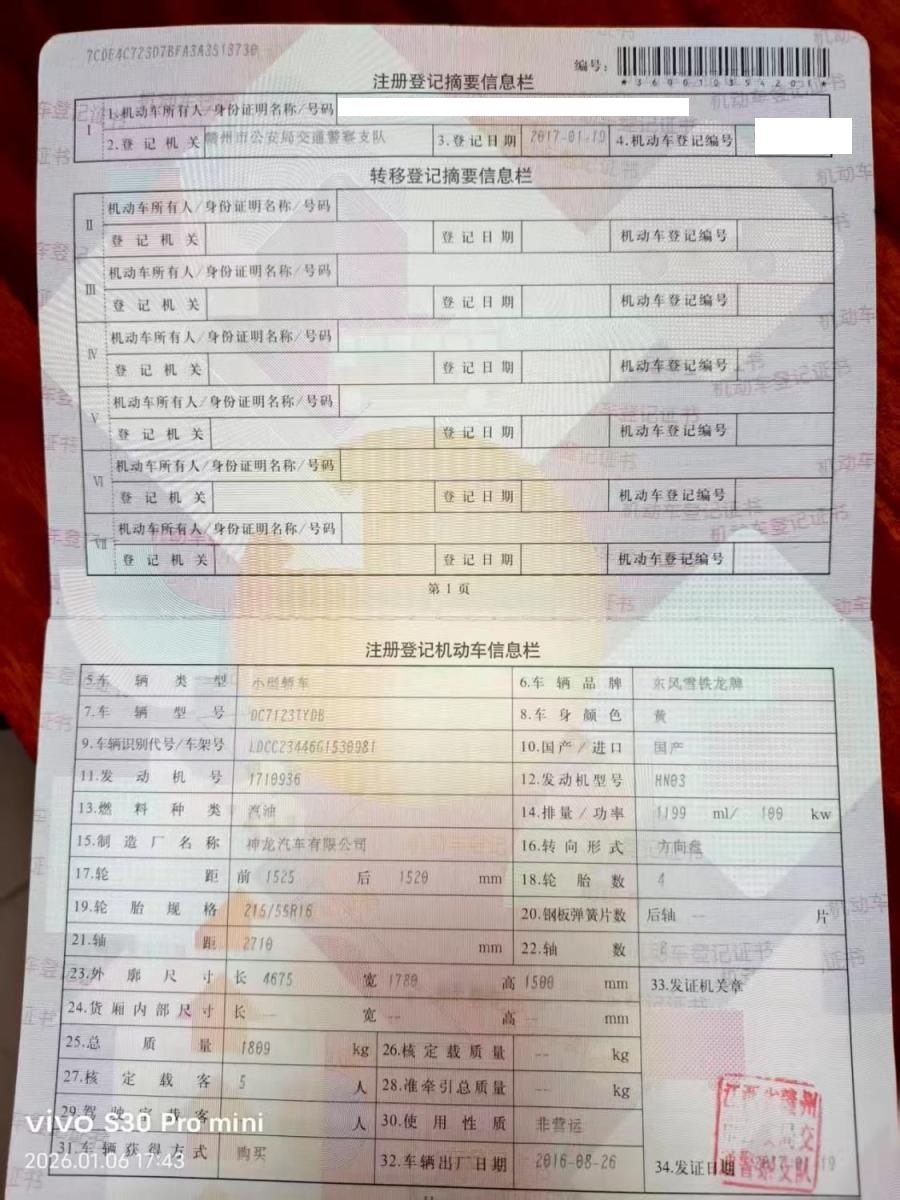 7CDE4C723D7BFA3A3S13730
编号：
*360010354201*
注册登记摘要信息栏
Ⅰ 1.机动车所有人/身份证明名称/号码
2.登记机关 赣州市公安局交通警察支队 3.登记日期 2017-01-19 4.机动车登记编号
转移登记摘要信息栏
Ⅱ 机动车所有人/身份证明名称/号码
登记机关 登记日期 机动车登记编号
Ⅲ 机动车所有人/身份证明名称/号码
登记机关 登记日期 机动车登记编号
Ⅳ 机动车所有人/身份证明名称/号码
登记机关 登记日期 机动车登记编号
Ⅴ 机动车所有人/身份证明名称/号码
登记机关 登记日期 机动车登记编号
Ⅵ 机动车所有人/身份证明名称/号码
登记机关 登记日期 机动车登记编号
Ⅶ 机动车所有人/身份证明名称/号码
登记机关 登记日期 机动车登记编号
第1页
注册登记机动车信息栏
5.车辆类型 小型轿车 6.车辆品牌 东风雪铁龙牌
7.车辆型号 DC7123TYDB 8.车身颜色 黄
9.车辆识别代号/车架号 LDCC23446G1530981 10.国产/进口 国产
11.发动机号 1710936 12.发动机型号 HN03
13.燃料种类 汽油 14.排量/功率 1199 ml/ 100 kw
15.制造厂名称 神龙汽车有限公司 16.转向形式 方向盘
17.轮距 前 1525 后 1520 mm 18.轮胎数 4
19.轮胎规格 215/55R16 20.钢板弹簧片数 后轴 -- 片
21.轴距 2710 mm 22.轴数
23.外廓尺寸 长 4675 宽 1780 高 1500 mm 33.发证机关章
24.货厢内部尺寸 长 -- 宽 -- 高 -- mm
25.总质量 1809 kg 26.核定载质量 -- kg
27.核定载客 5 人 28.准牵引总质量 -- kg
29.驾驶室载客 人 30.使用性质 非营运
31.车辆获得方式 购买 32.车辆出厂日期 2016-08-26 34.发证日期 2017-01-19
vivo S30 Pro mini
2026.01.06 17:43